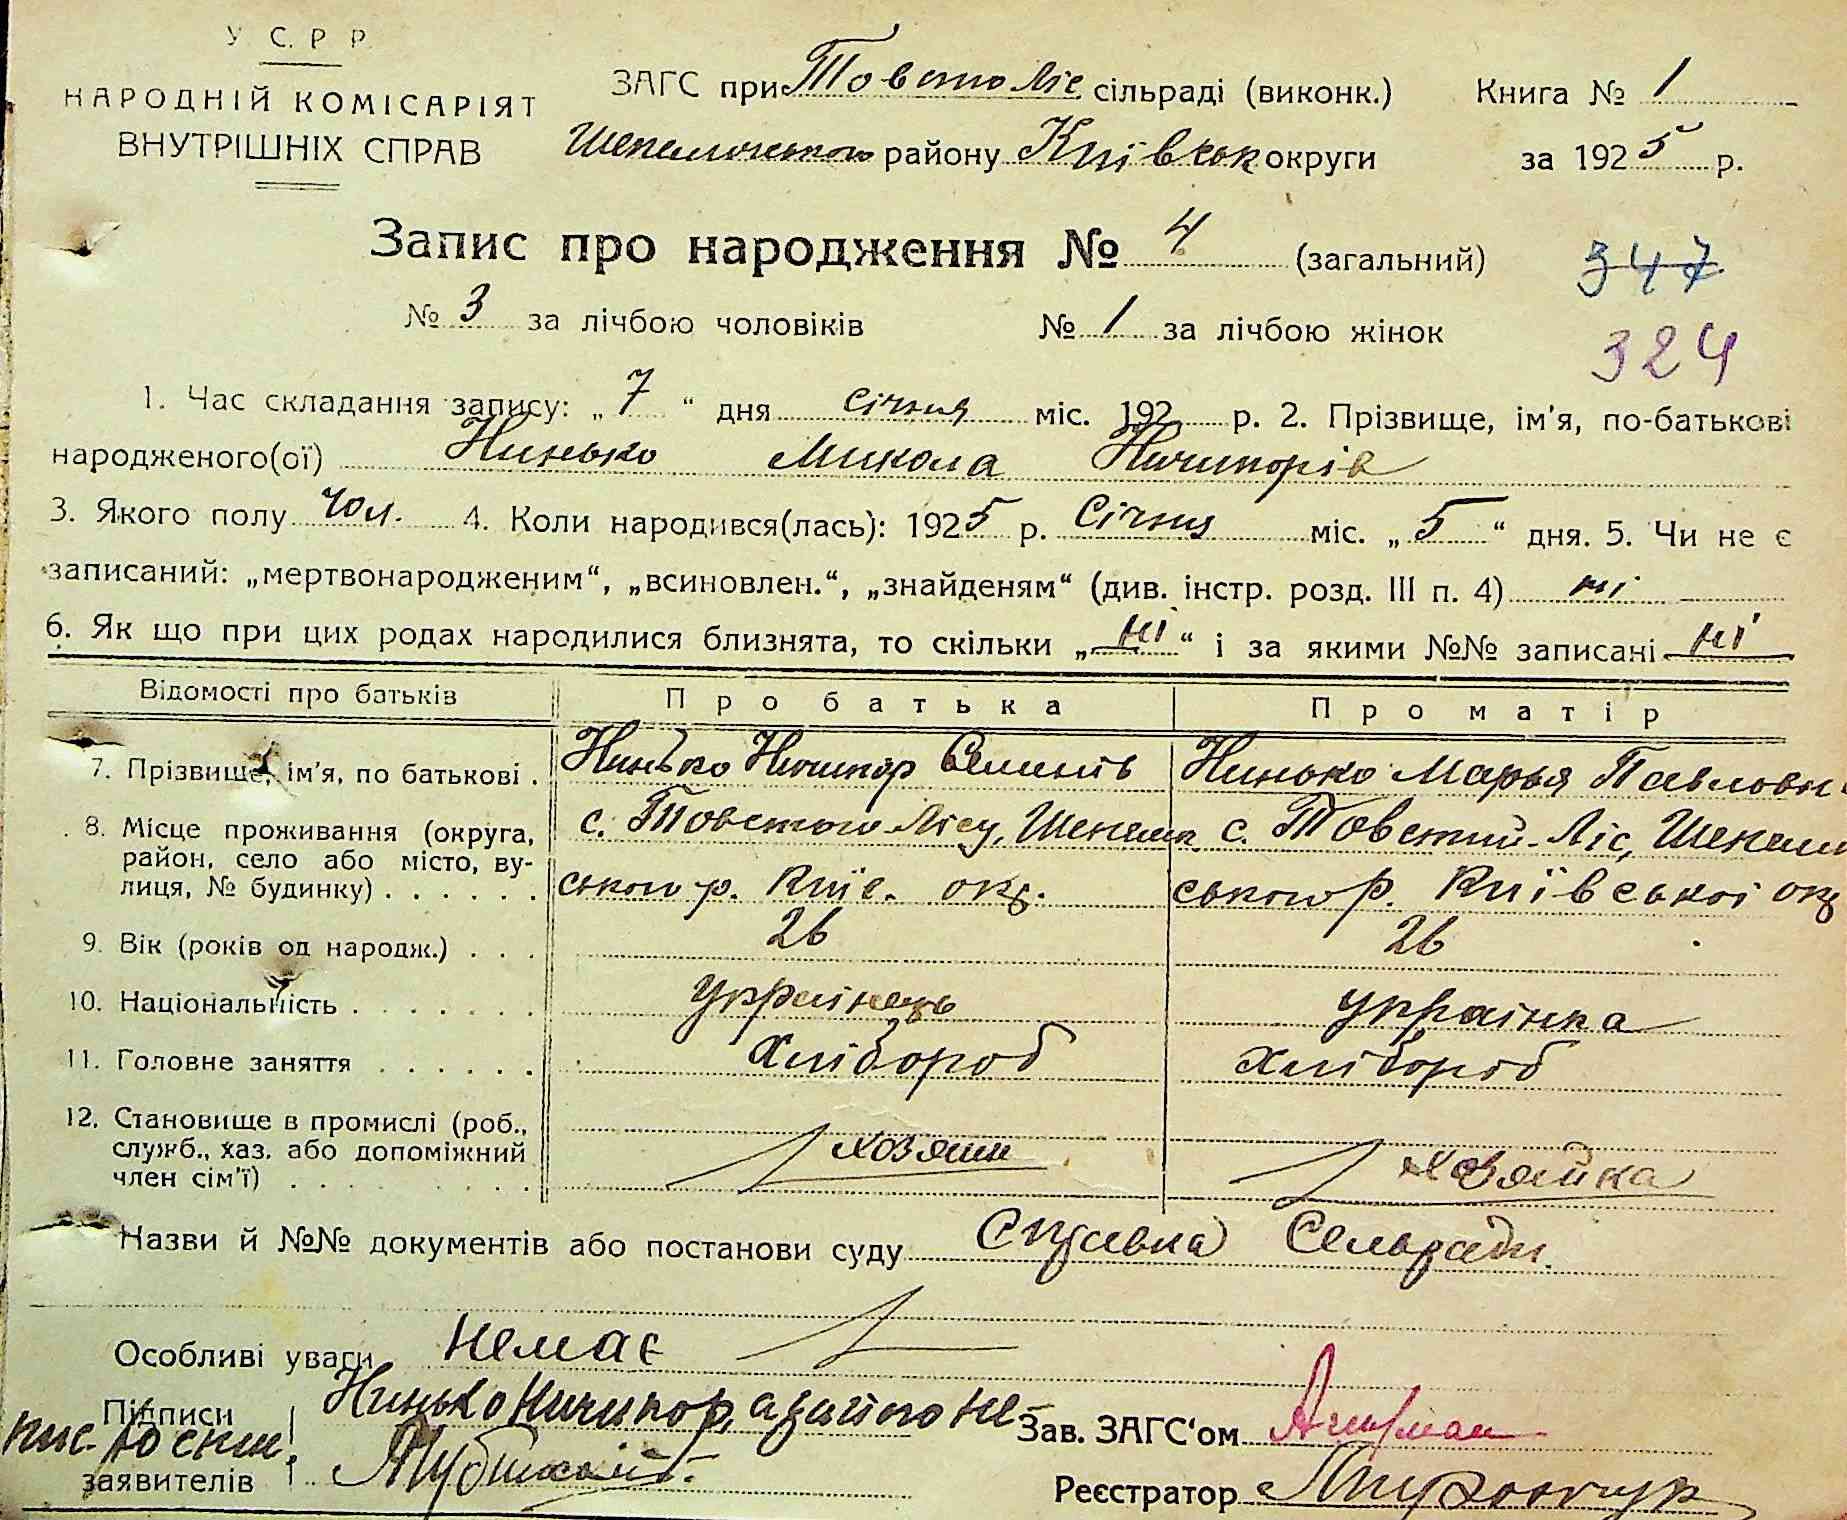 У С. Р. Р.
НАРОДНІЙ КОМІСАРІЯТ
ВНУТРІШНІХ СПРАВ
ЗАГС при Товсто Ліс сільраді (виконк.)
Книга № 1
району Київськ округи
за 1925 р.
Запис про народження № 4 (загальний)
347
№ 3 за лічбою чоловіків № 1 за лічбою жінок
324
1. Час складання запису: „7“ дня січня міс. 192 р. 2. Прізвище, ім'я, по-батькові
народженого(ої) Нинько Микола Ничипорів
3. Якого полу чол. 4. Коли народився(лась): 1925 р. Січня міс. „5“ дня. 5. Чи не є
записаний: „мертвонародженим“, „всиновлен.“, „знайденям“ (див. інстр. розд. III п. 4) ні
6. Як що при цих родах народилися близнята, то скільки „ні“ і за якими №№ записані ні
Відомості про батьків Про батька Про матір
7. Прізвище, ім'я, по батькові . Нинько Ничипор Нинько Марья Павловн
8. Місце проживання (округа, район, село або місто, вулиця, № будинку) . . . . . .
с. Товстого Лісу, Шепелич
ського р. Київ. окр.
с. Товстий-Ліс, Шепели
ського р. Київської окр
9. Вік (років од народж.) . . . 26 26
10. Національність . . . . . . . українець українка
11. Головне заняття . . . . . . хлібороб хлібороб
12. Становище в промислі (роб., служб., хаз. або допоміжний член сім'ї) . . . . . . . . .
хозяин хозяйка
Назви й №№ документів або постанови суду Справка Сельради.
Особливі уваги немає
Підписи
заявителів
Нинько Ничипор, а за його не
пис.
Зав. ЗАГС'ом
Реєстратор